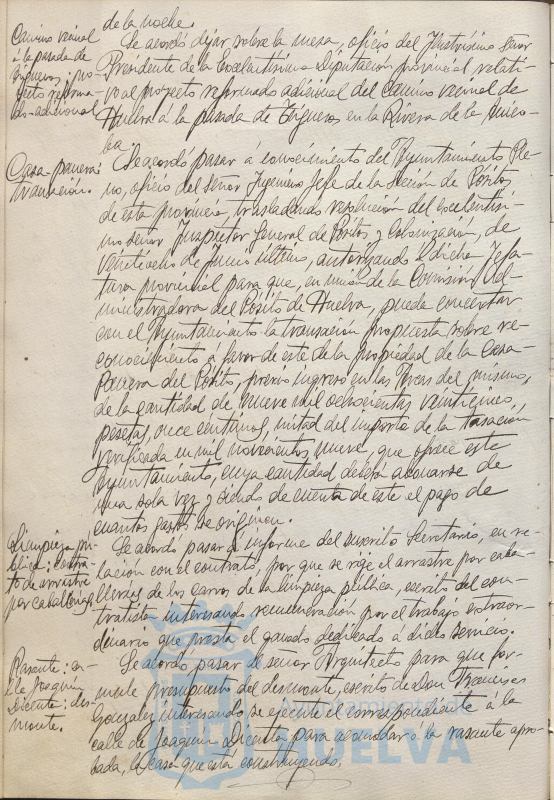 de la noche.
Camino vecinal
á la pasada de
Trigueros: pro-
yecto reforma-
do-adicional
Se acordó dejar sobre la mesa, oficio del Ilustrísimo Señor
Presidente de la Excelentísima Diputación provincial relati-
vo al proyecto reformado adicional del camino vecinal de
Huelva á la pasada de Trigueros en la Rivera de la Nico-
ba.
Casa-panera:
transacción.
Se acordó pasar á conocimiento del Ayuntamiento Ple-
no, oficio del Señor Ingeniero Jefe de la Sección de Pósitos
de esta provincia, trasladando resolución del Excelentísi-
mo Señor Inspector General de Pósitos y Colonización, de
veintiocho de Junio último, autorizando á dicha Jefa-
tura provincial para que, en unión de la Comisión Ad-
ministradora del Pósito de Huelva, pueda concertar
con el Ayuntamiento la transacción propuesta sobre re-
conocimiento a favor de este de la propiedad de la Casa-
Panera del Pósito, previo ingreso en las Arcas del mismo,
de la cantidad de nueve mil ochocientas veinticinco
pesetas, once centimos, mitad del importe de la tasación
verificada en mil novecientos nueve, que ofrece este
Ayuntamiento, cuya cantidad deberá abonarse de
una sola vez y siendo de cuenta de este el pago de
cuantos gastos se originen.
Limpieza pú-
blica: contra-
to de arrastre
por caballerías
Se acordó pasar á informe del suscrito Secretario, en re-
lación con el contrato, por que se rige el arrastre por caba-
llerías de los carros de la limpieza pública, escrito del con-
tratista interesando remuneración por el trabajo extraor-
dinario que presta el ganado dedicado á dicho servicio.
Rasante: ca-
lle Joaquín
Dicenta: des-
monte.
Se acordó pasar al señor Arquitecto para que for-
mule presupuesto del desmonte, escrito de Don Francisco
Gonzalez interesando se ejecute el correspondiente á la
calle de Joaquín Dicenta para acomodar á la rasante apro-
bada, la casa que está construyendo.
Ayuntamiento de
HUELVA